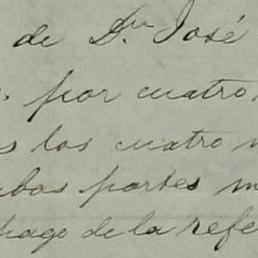 de Dn José
por cuatro
s los cuatro
mbas partes
pago de la refe